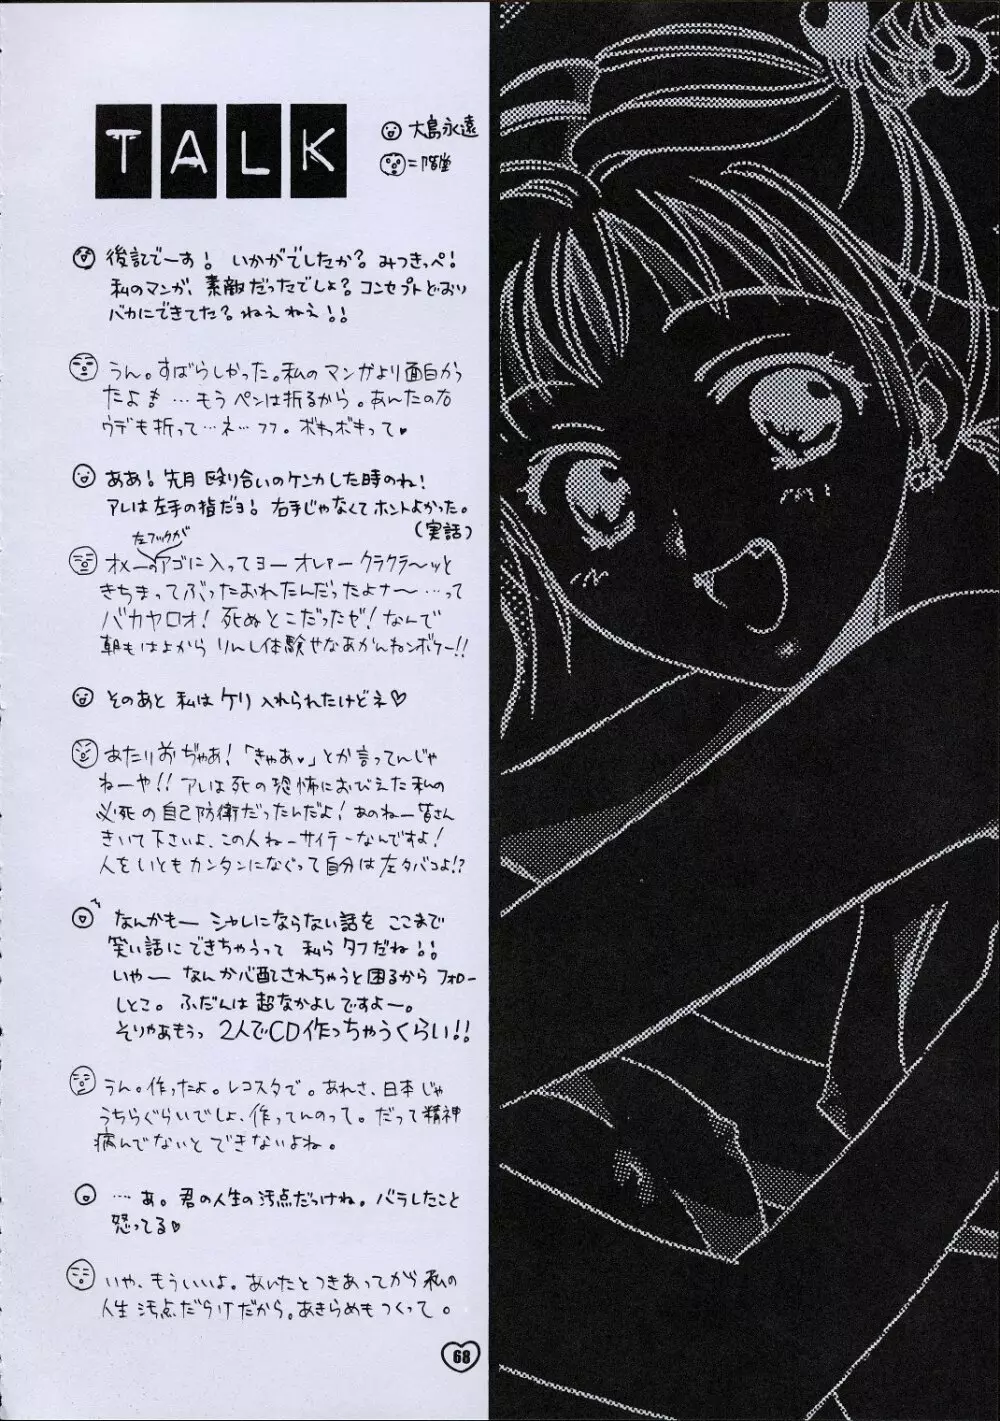 TALK
大島永遠
二階堂
後記でーす! いかがでしたか? みつきっぺ!
私のマンガ、素敵だったでしょ? コンセプトどおり
バカにできてた? ねえ ねえ!!
うん。すばらしかった。私のマンガより面白かっ
たよ …もうペンは折るから。あんたの右
ウデも折って…ネ…フフ。ボキッボキって♥
ああ! 先月 殴り合いのケンカした時のね!
アレは左手の指だョ! 右手じゃなくてホントよかった。
(実話)
左フックが
オメーのアゴに入ってヨー オレァー クラクラ〜ッと
きちまってぶったおれたんだったよナ〜…って
バカヤロオ! 死ぬとこだったゼ! なんで
朝もはよから りんし体験せなあかんねンボケー!!
そのあと 私は ケリ 入れられたけどネ♡
あたり前ぢゃあ! 「きゃあ♥」とか言ってんじゃ
ねーや!! アレは死の恐怖におびえた私の
必死の自己防衛だったんだよ! あのねー皆さん
きいて下さいよ、この人ねーサイテーなんですよ!
人をいともカンタンになぐって自分は左タバコよ!?
なんかもー シャレにならない話を ここまで
笑い話にできちゃうって 私ら タフだね!!
いやー なんか心配されちゃうと困るから フォロー
しとこ。ふだんは超なかよしですよー。
そりゃあもうっ 2人でCD作っちゃうくらい!!
うん。作ったよ。レコスタで。あれさ、日本じゃ
うちらぐらいでしょ、作ってんのって。だって精神
病んでないとできないよね。
…あ。君の人生の汚点だっけね。バラしたこと
怒ってる♡
いや、もういいよ。あんたとつきあってから私の
人生 汚点だらけだから。あきらめもつくって。
68